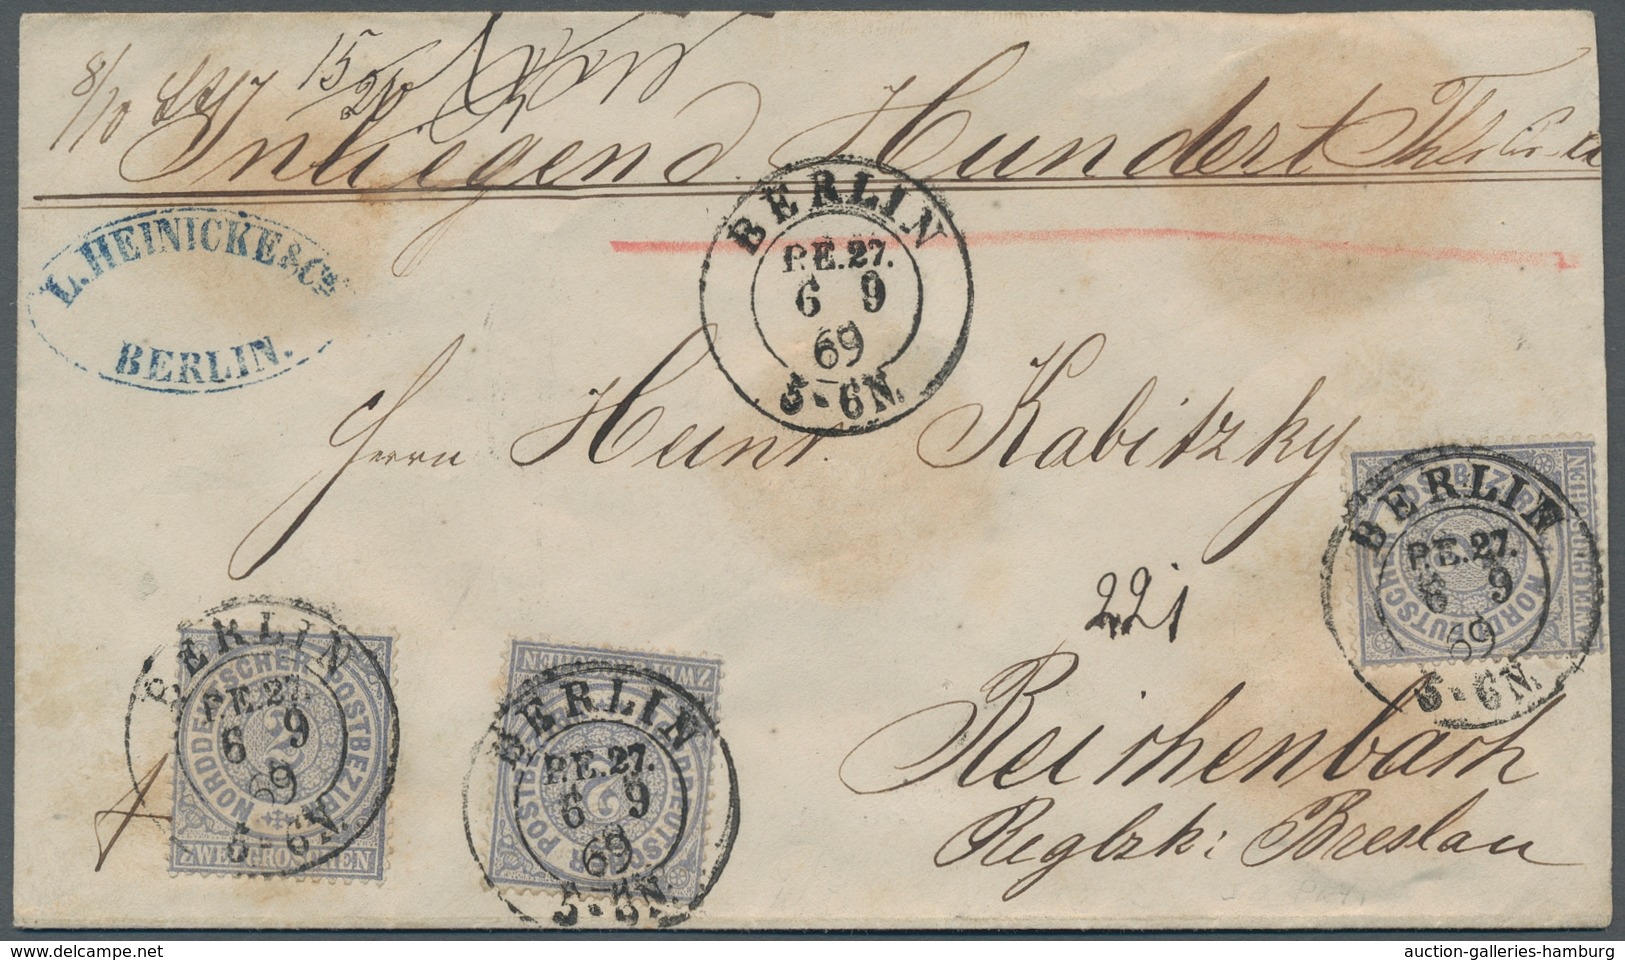 15
20
8/10
Inliegend Hundert Thlr Cr. A
L. HEINICKE & Co.
BERLIN.
BERLIN
P.E.27.
6 9
69
5-6N.
Herrn Heinr. Kabitzky
BERLIN
P.E.27.
6 9
69
5-6N.
NORDDEUTSCHER POSTBEZIRK
ZWEI GROSCHEN
221
Reichenbach
Regbzk: Breslau
BERLIN
P.E.27.
6 9
69
5-6N.
NORDDEUTSCHER POSTBEZIRK
2
ZWEI GROSCHEN
BERLIN
P.E.27.
6 9
69
5-6N.
NORDDEUTSCHER POSTBEZIRK
2
ZWEI GROSCHEN
auction-galleries-hamburg